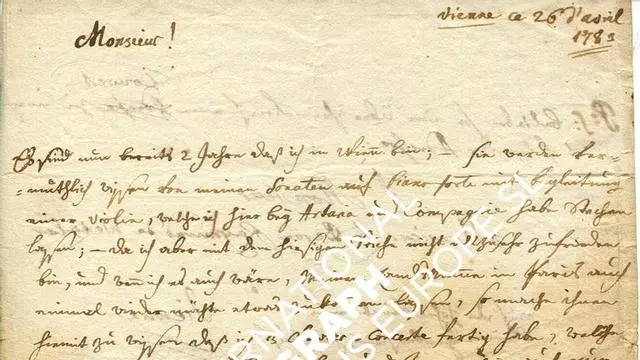 vienne ce 26 d'avril
1783
Monsieur!
Es sind nun bereits 2 Jahre daß ich in Wienn bin; – sie werden ver-
=muthlich wissen von meinen Sonaten auf Piano forte mit begleitung
einer violin, welche ich hier bey Artaria und Compagnie habe Stechen
lassen; – da ich aber mit dem hiesigen Stiche nicht allzusehr zufrieden
bin, und wenn ich es auch wäre, Meinen Landsmann in Paris auch
einmal wieder möchte etwas zukommen lassen, so mache ihnen
hiemit zu wissen daß ich 3 Clavier Concerte fertig habe, welche
INTERNATIONAL
AUTOGRAPH
EUROPE SL